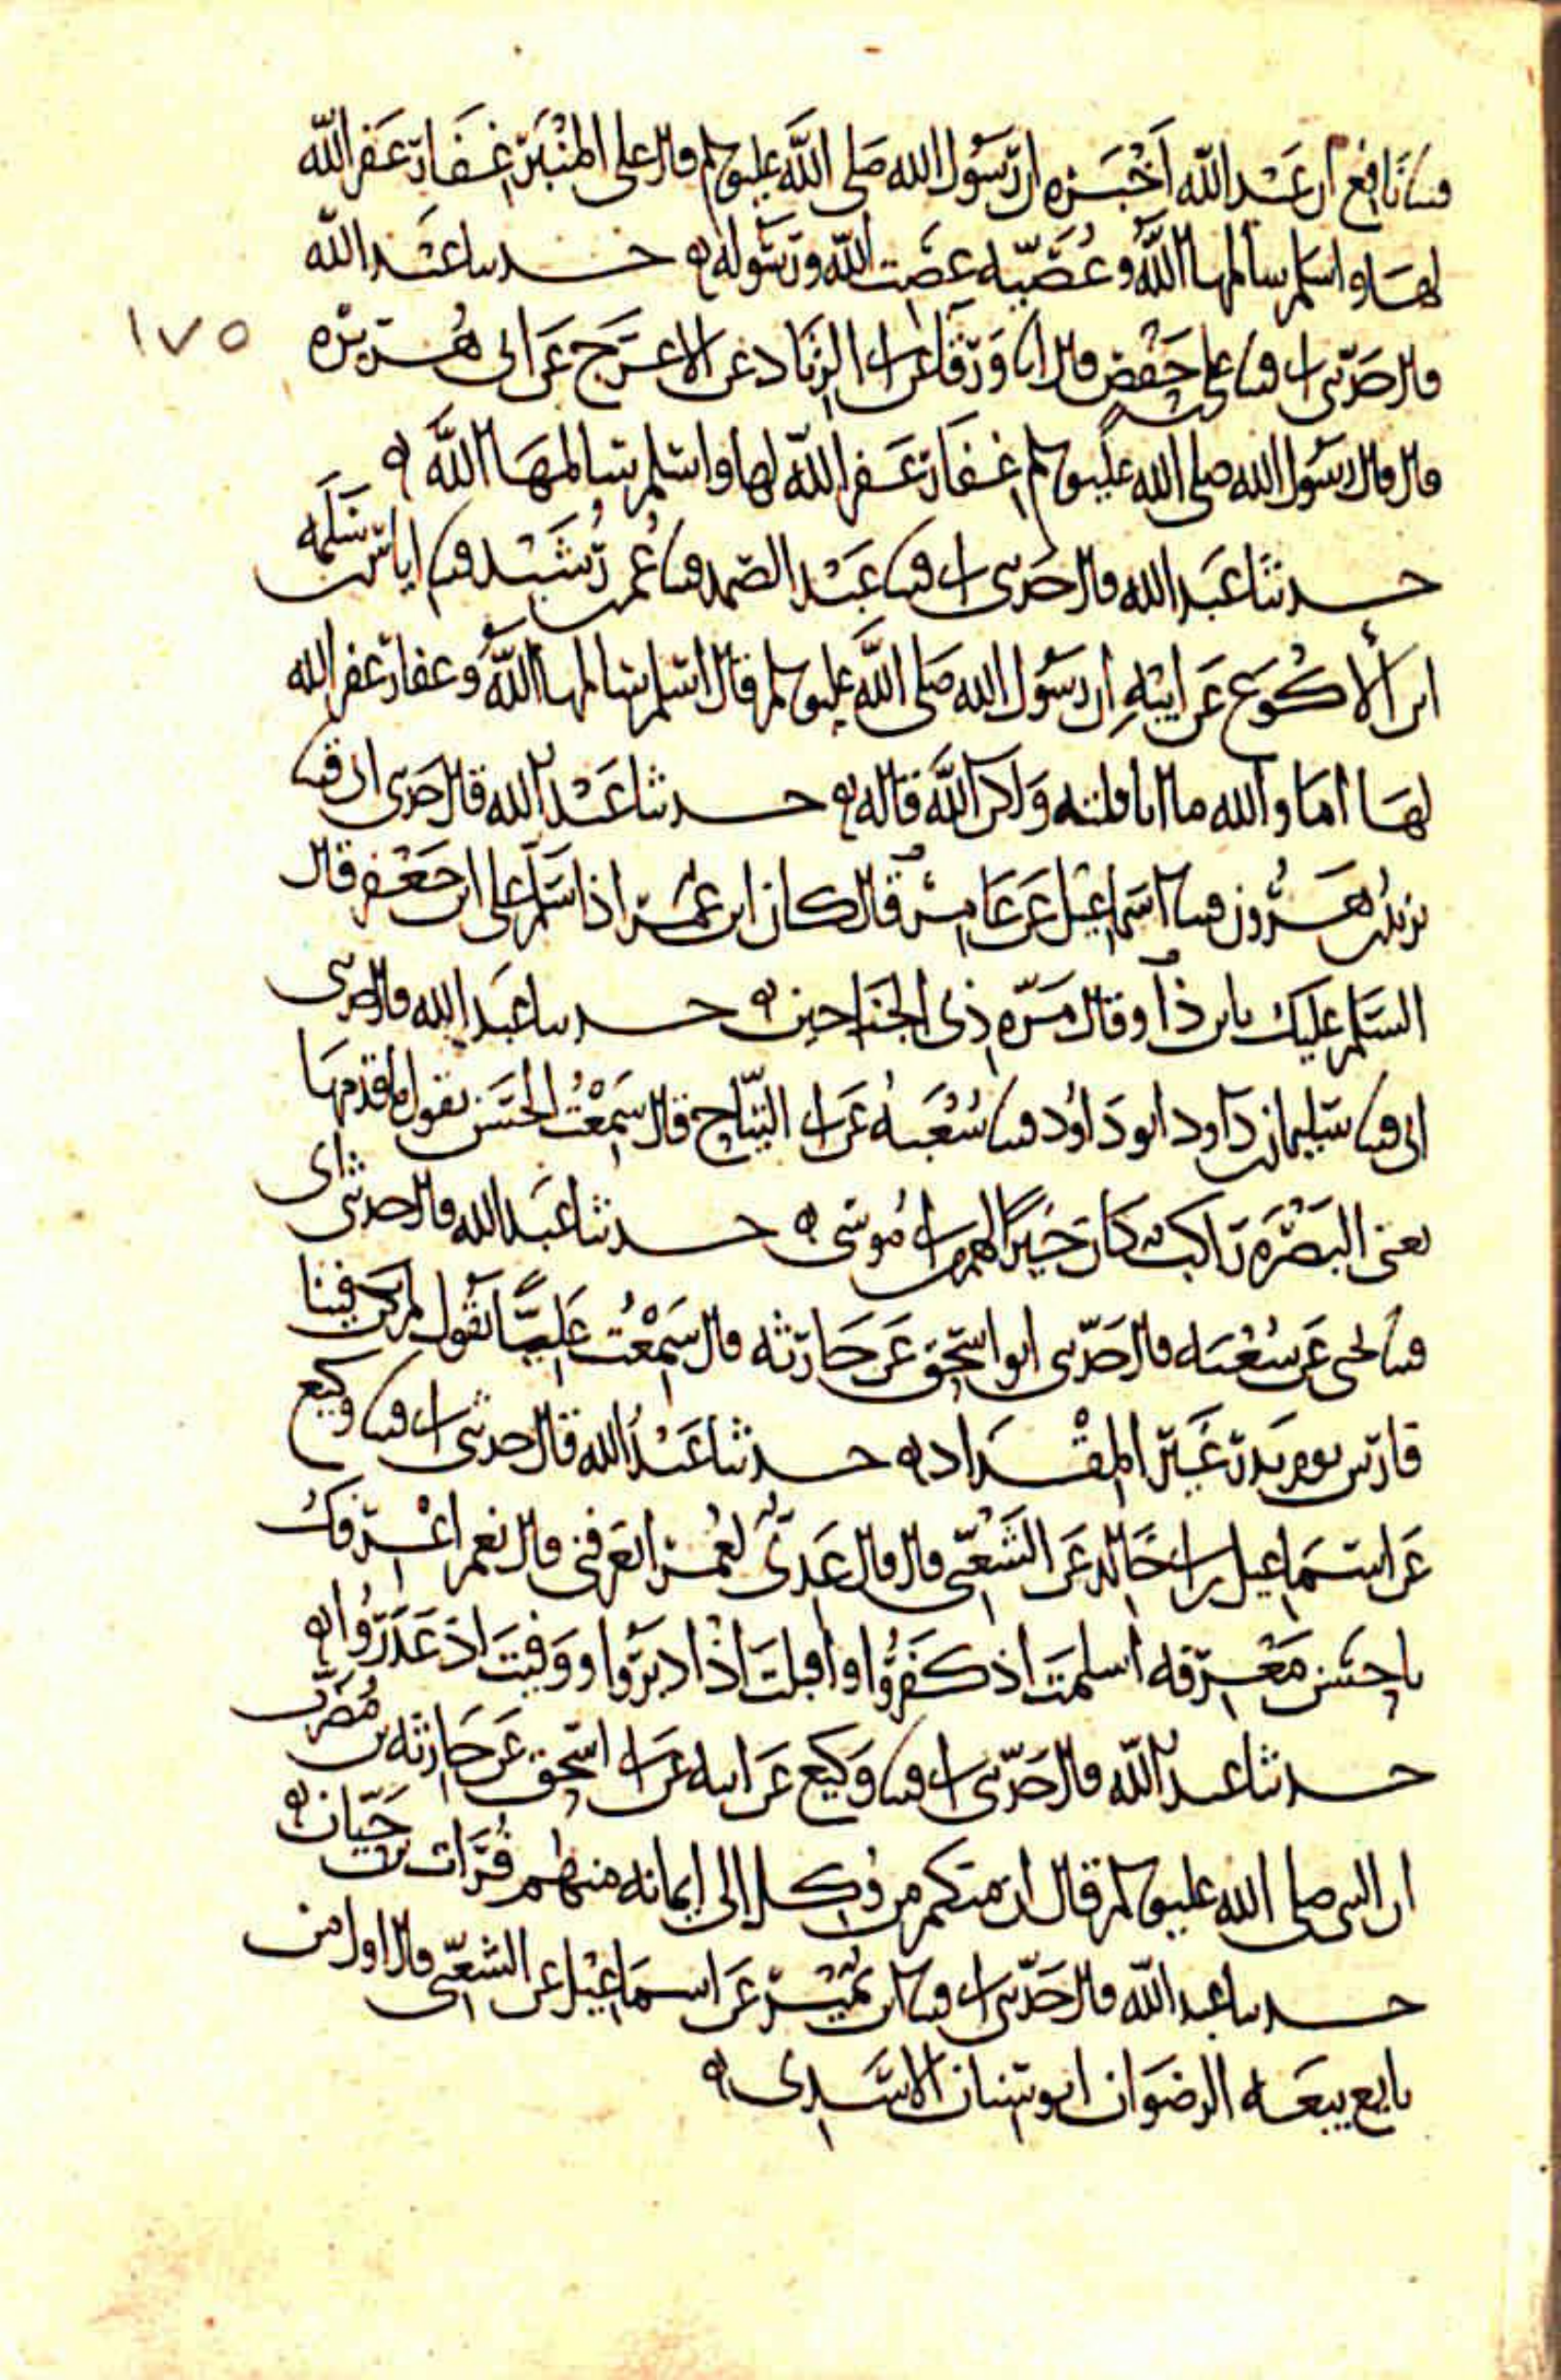 قثنا نافع ان عبد الله اخبره ان رسول الله صلى الله عليه وسلم قال على المنبر غفار غفر الله
لها واسلم سالمها الله وعصية عصت الله ورسوله ه حدثنا عبد الله
١٧٥
قال حدثني ابي قثنا علي بن حفص قال انا ورقا عن ابي الزناد عن الاعرج عن ابي هريره
قال قال رسول الله صلى الله عليه وسلم غفار غفر الله لها واسلم سالمها الله ه
حدثنا عبد الله قال حدثني ابي قثنا عبد الصمد قثنا عمر بن رشيد قثنا اياس بن سلمه
ابن الاكوع عن ابيه ان رسول الله صلى الله عليه وسلم قال اسلم سالمها الله وغفار غفر الله
لها اما والله ما انا قلته ولكن الله قاله ه حدثنا عبد الله قال حدثني ابي قثنا
يزيد بن هرون قثنا اسماعيل عن عامر قال كان ابن عمر اذا سلم على ابن جعفر قال
السلم عليك يابن ذا وقال مره ذي الجناحين ه حدثنا عبد الله قال حدثني
ابي قثنا سليمان بن داود ابو داود قثنا شعبه عن ابي التياح قال سمعت الحسن يقول ما قدمها
يعني البصره راكب كان خيرا لهم من ابي موسى ه حدثنا عبد الله قال حدثني ابي
قثنا يحيى عن شعبه قال حدثني ابو اسحق عن حارثه قال سمعت عليا يقول لم يكن فينا
فارس يوم بدر غير المقداد ه حدثنا عبد الله قال حدثني ابي قثنا وكيع
عن اسماعيل بن ابي خالد عن الشعبي قال قال عدي لعمر اتعرفني قال نعم اعرفك
باحسن معرفه اسلمت اذ كفروا واقبلت اذ ادبروا ووفيت اذ غدروا ه
حدثنا عبد الله قال حدثني ابي قثنا وكيع عن ابيه عن ابي اسحق عن حارثه بن مضرب
ان النبي صلى الله عليه وسلم قال ان منكم من وكل الى ايمانه منهم فرات بن حيان ه
حدثنا عبد الله قال حدثني ابي قثنا ابن نمير عن اسماعيل عن الشعبي قال اول من
بايع بيعه الرضوان ابو سنان الاسدي ه